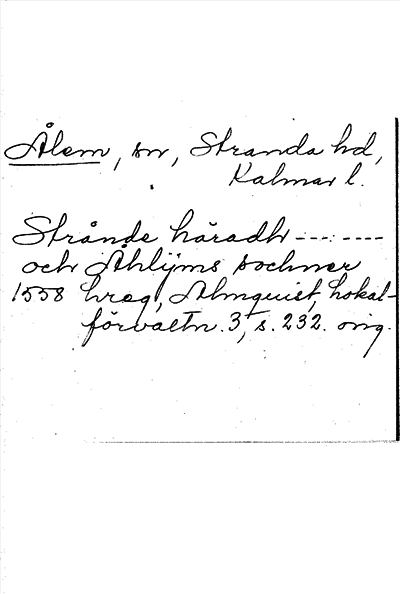 Ålem, sn, Stranda hd,
Kalmar l.
Strånde häradh --- : ----
och Åhlijms sochner
1558 hreg, Almquist, Lokal-
förvaltn. 3, s. 232. orig.